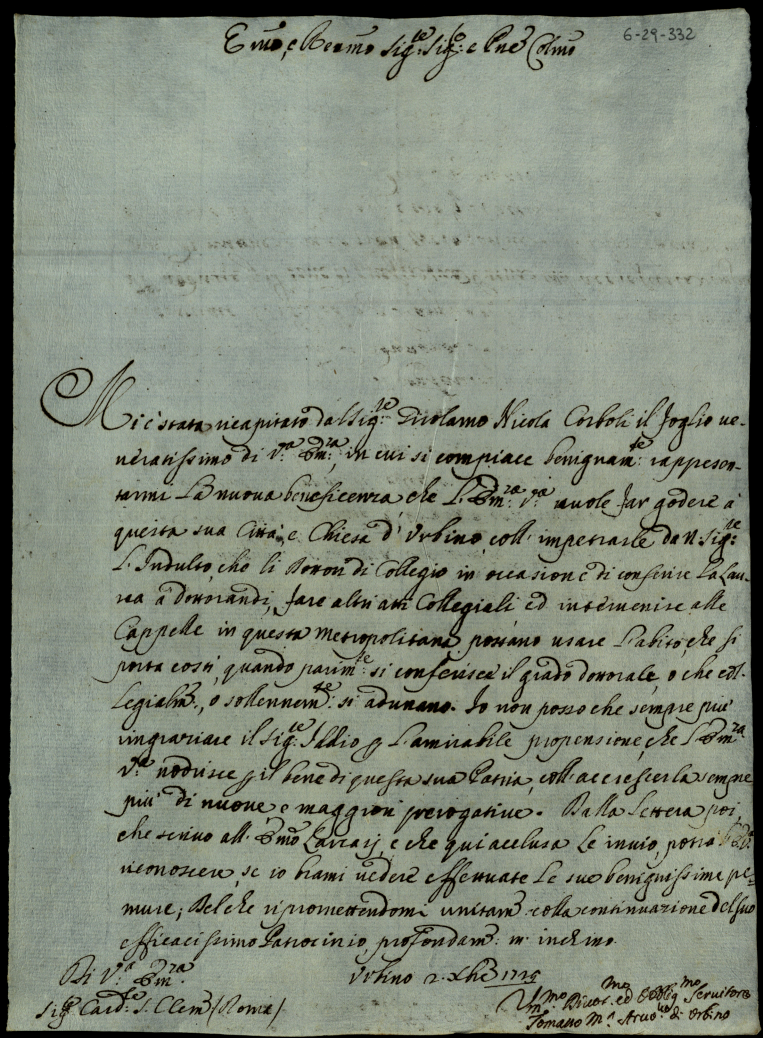 6-29-332
Emo, e Revmo Sig.re Sig.re e Pne Colmo
Mi è stata recapitato dal Sig.re Girolamo Nicola Corboli il foglio ve-
neratissimo di V.a Em.za, in cui si compiace benignam.te rappresen-
tarmi la nuova beneficenza, che l'Em.za V.a vuole far godere à
questa sua Città, e Chiesa d'Urbino, coll'impetrarle da N. Sig.re
l'Indulto, che li Dottori di Collegio in occasione di conferire la Lau-
rea a Dottorandi, fare altri atti Collegiali ed intervenire alle
Cappelle in questa Metropolitana, possano usare l'abito, che si
porta costì, quando parim.te si conferisce il grado dottorale, o che col-
legialm.e, o sollennem.te si adunano. Io non posso che sempre più
ringraziare il Sig.re Iddio p l'amirabile propensione, che l'Em.za
V.a nodrisce p il bene di questa sua Patria, coll'accrescerla sempre
più di nuove, e maggiori prerogative. Dalla lettera poi,
che scrivo all'Emo e che qui acclusa le invio, potrà
riconoscere, se io brami vedere effettuate le sue benignissime pre-
mure; Del che ripromettendomi unitam.e colla continuazione del suo
efficacissimo Patrocinio profondam.e m'inchino.
Di V.a Em.za Urbino 2. Xbre 1725
Sig.re Card.le S. Clem.e (Roma) Um.mo Divot. ed Obblig.mo Servitore
Tomaso M.a Arciv.vo di Urbino